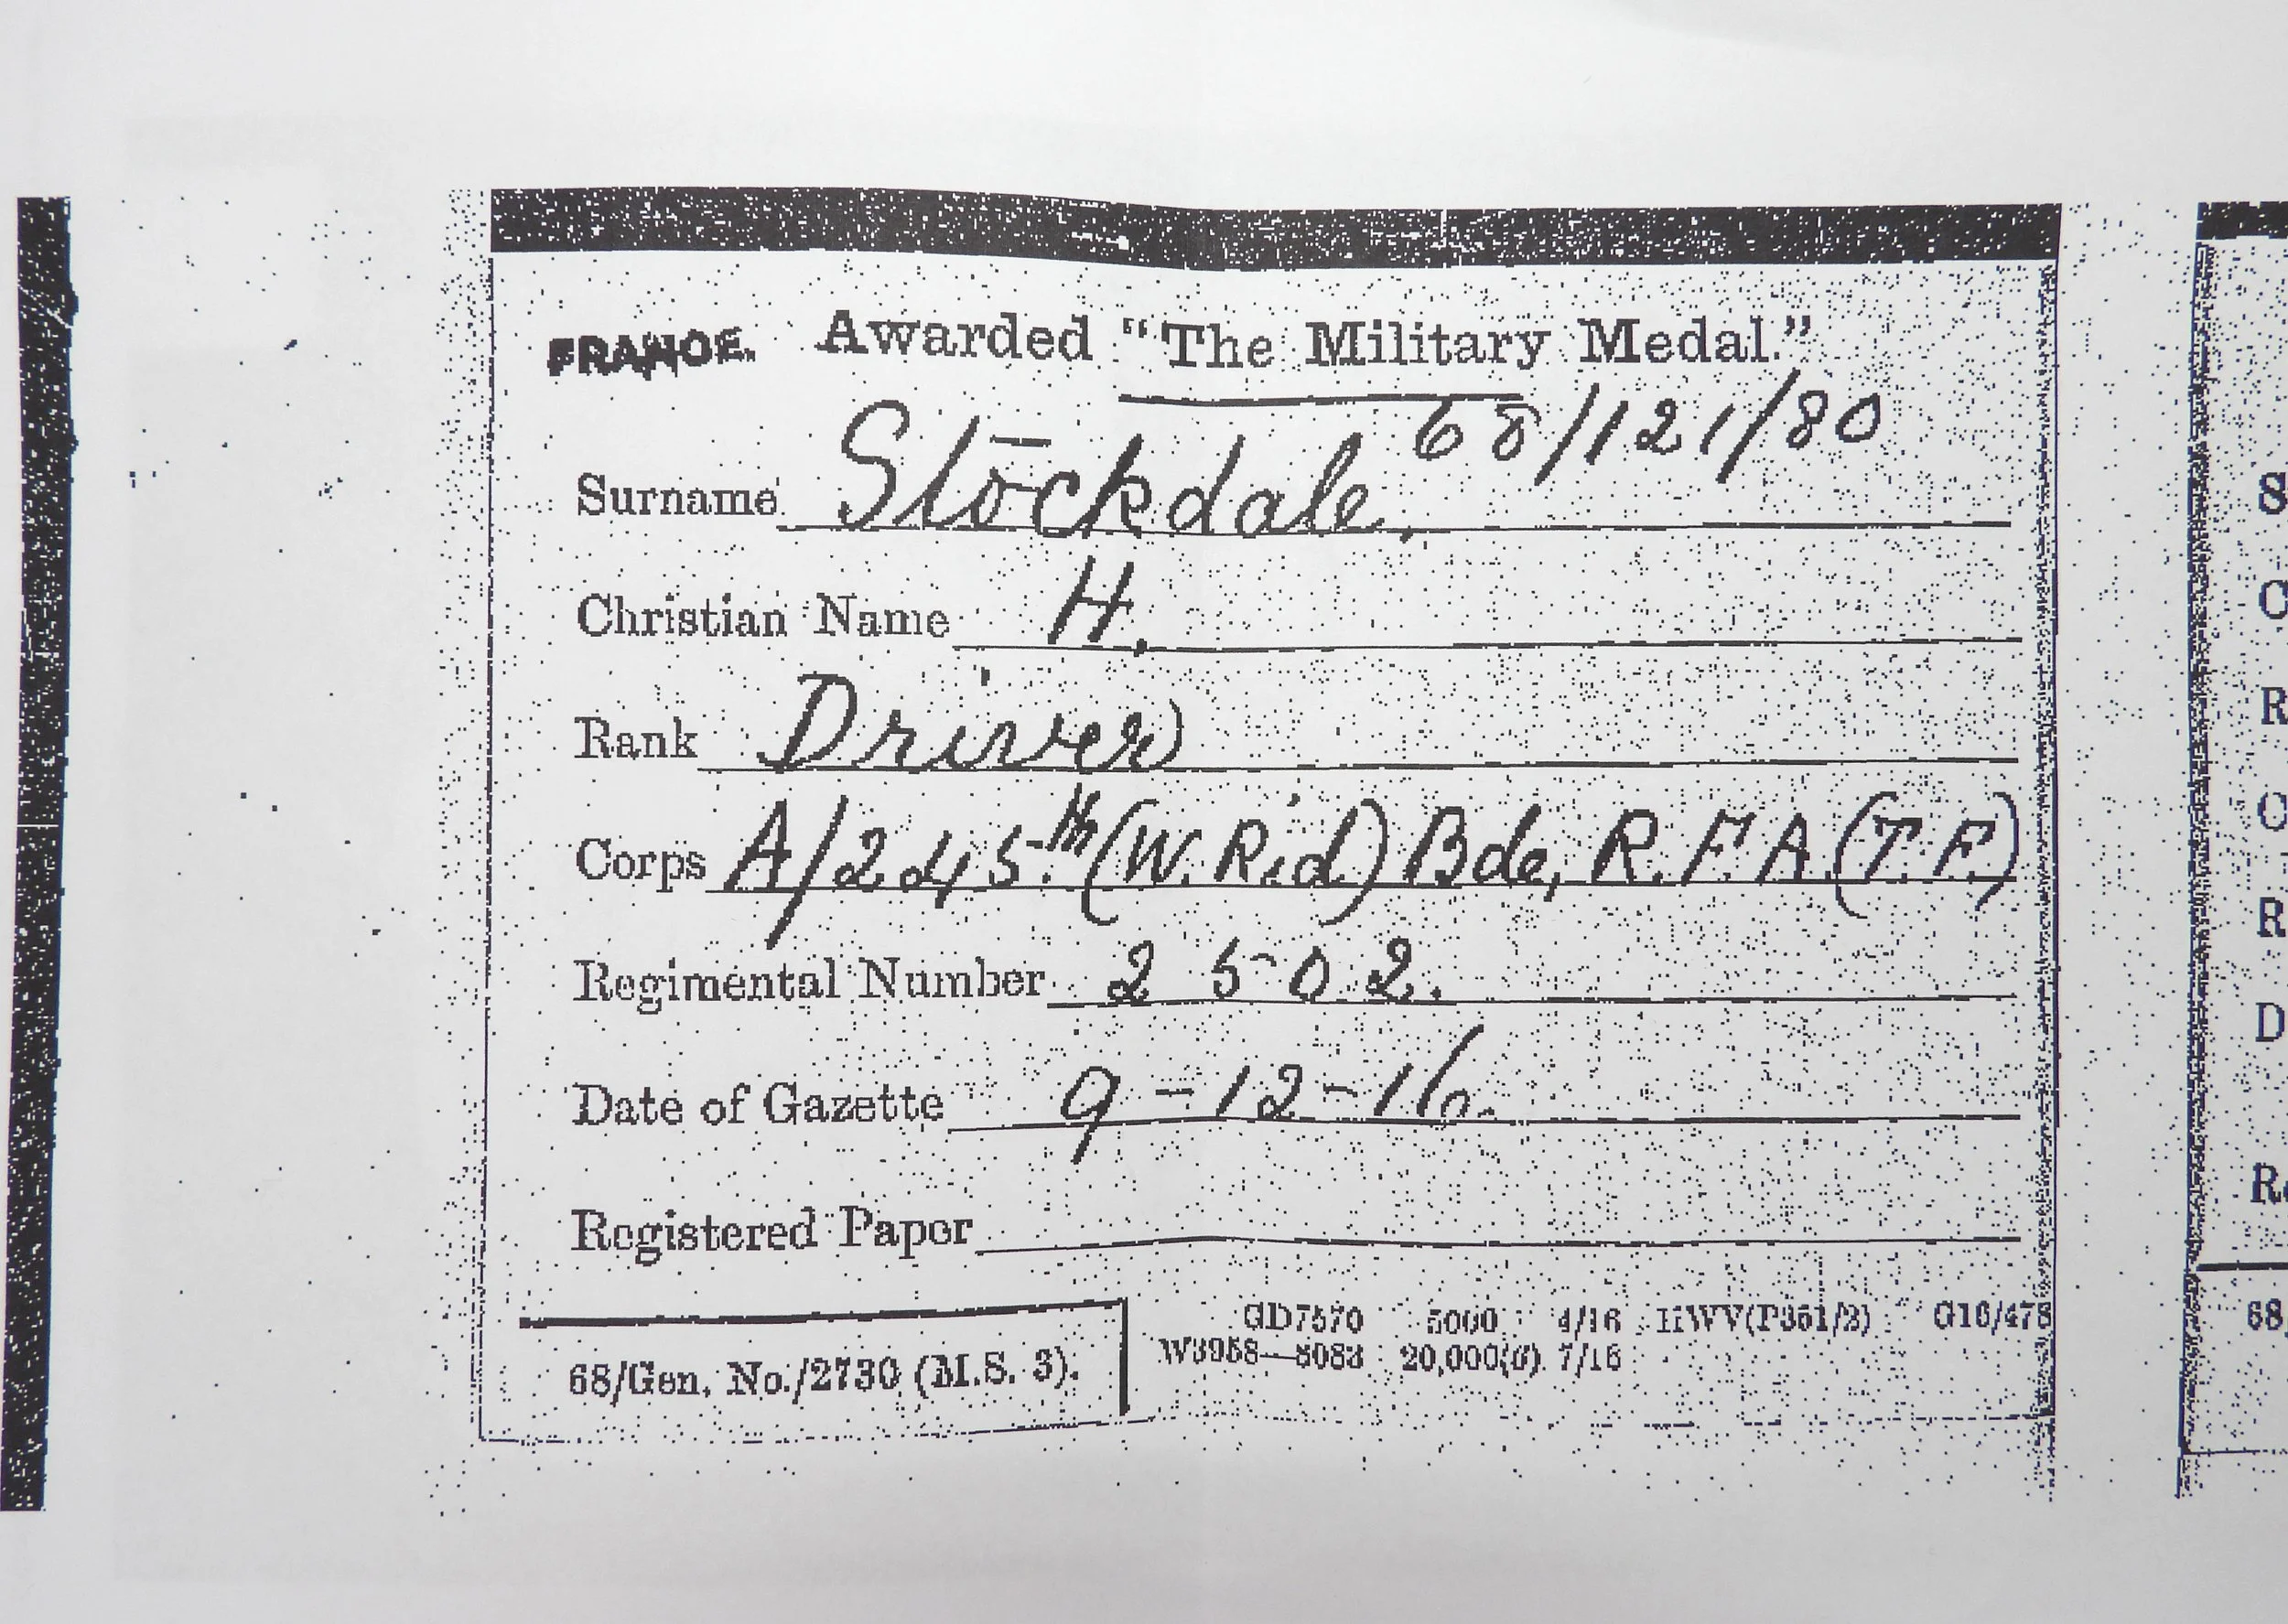 FRANCE. Awarded "The Military Medal."
68/121/80
Surname Stockdale,
Christian Name H.
Rank Driver
Corps A/245th (W. Rid) Bde, R.F.A. (T.F.)
Regimental Number 2502.
Date of Gazette 9-12-16.
Registered Paper
GD7570 5000 4/16 HWV(P361/2) G16/478
W3958—8083 20,000(6) 7/16
68/Gen. No./2730 (M.S. 3).
S
C
R
C
R
D
Re
68